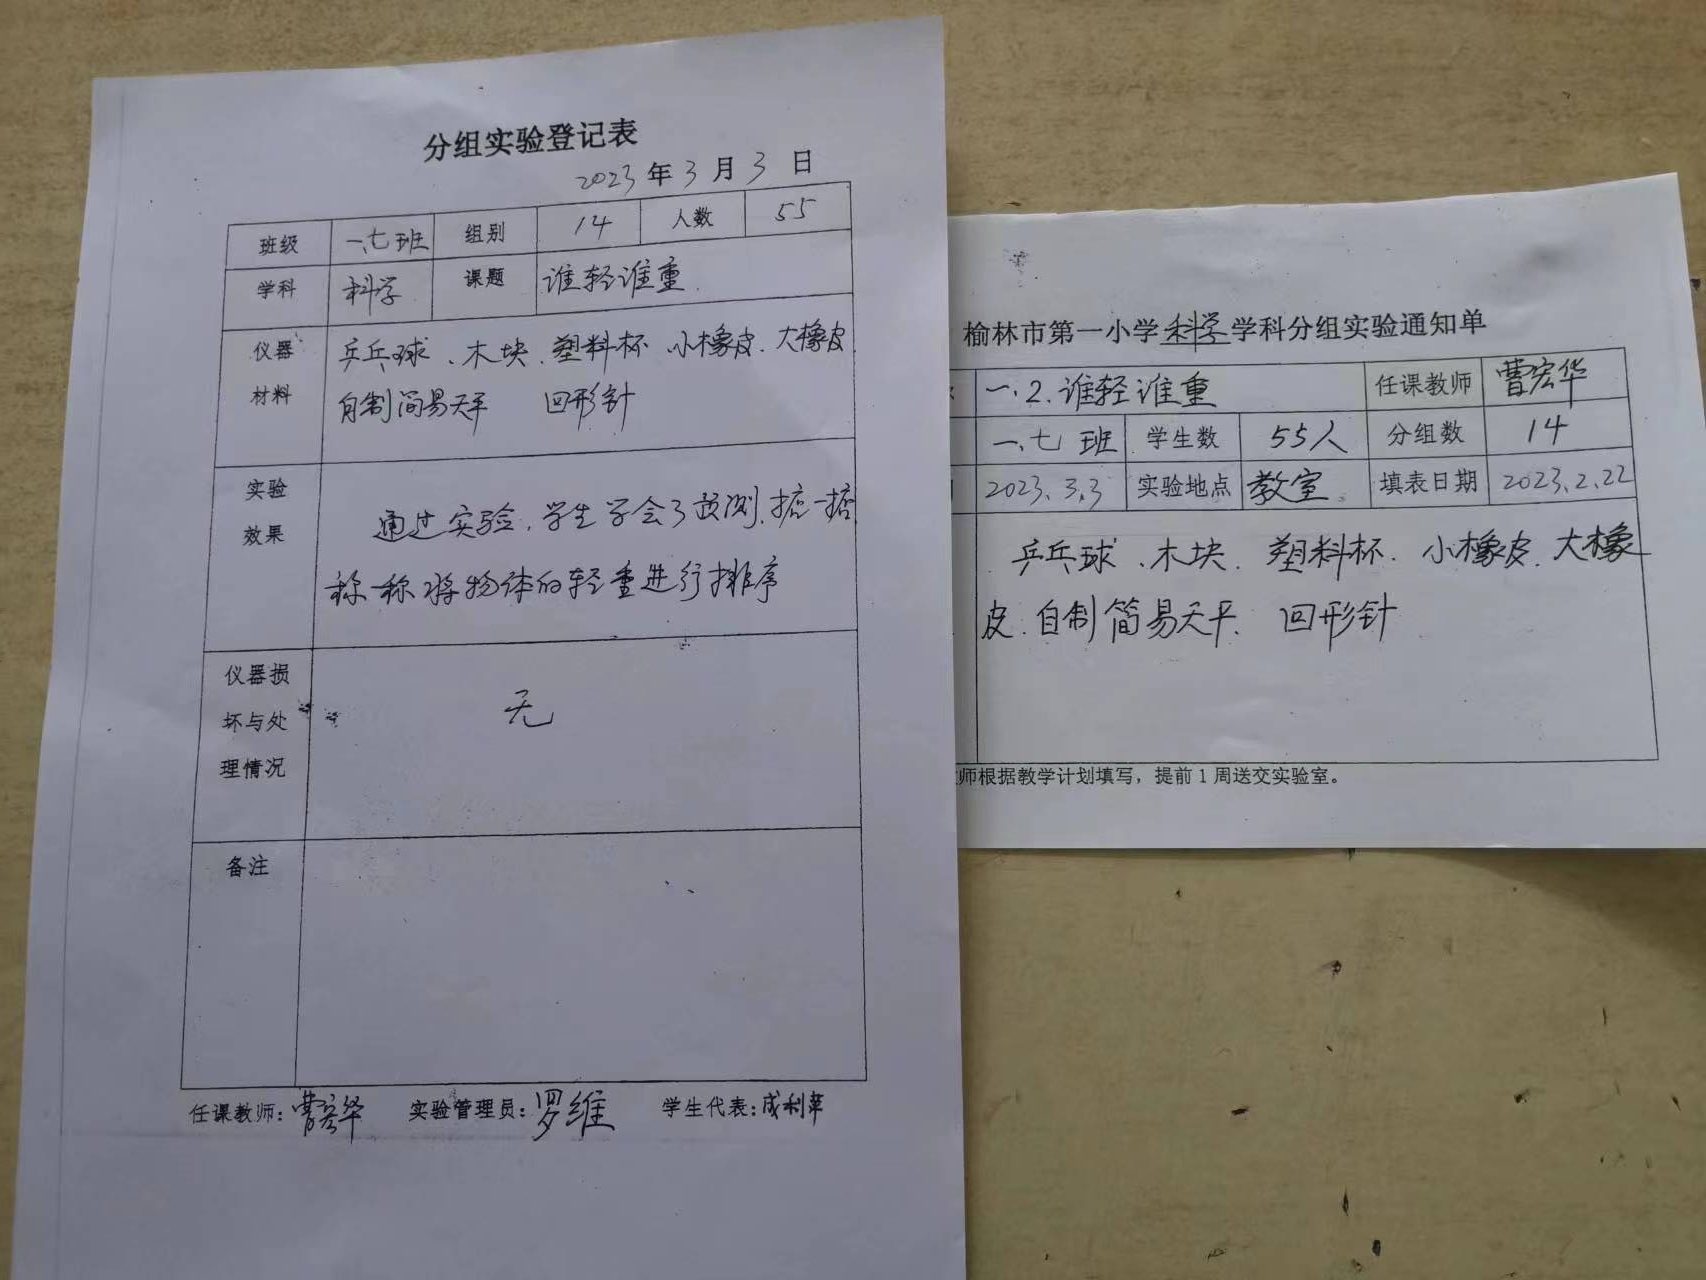 分组实验登记表
2023年3月3日
班级 一.七班 组别 14 人数 55
学科 科学 课题 谁轻谁重.
仪器材料 乒乓球、木块、塑料杯、小橡皮、大橡皮
自制简易天平 回形针
实验效果 通过实验,学生学会了预测、掂一掂
称一称将物体的轻重进行排序
仪器损坏与处理情况 无
备注
任课教师:曹宏华 实验管理员:罗维 学生代表:
榆林市第一小学科学学科分组实验通知单
一.2.谁轻谁重 任课教师 曹宏华
一.七班 学生数 55人 分组数 14
2023.3.3 实验地点 教室. 填表日期 2023.2.22
乒乓球、木块、塑料杯、小橡皮、大橡
皮、自制简易天平、回形针
师根据教学计划填写,提前1周送交实验室。